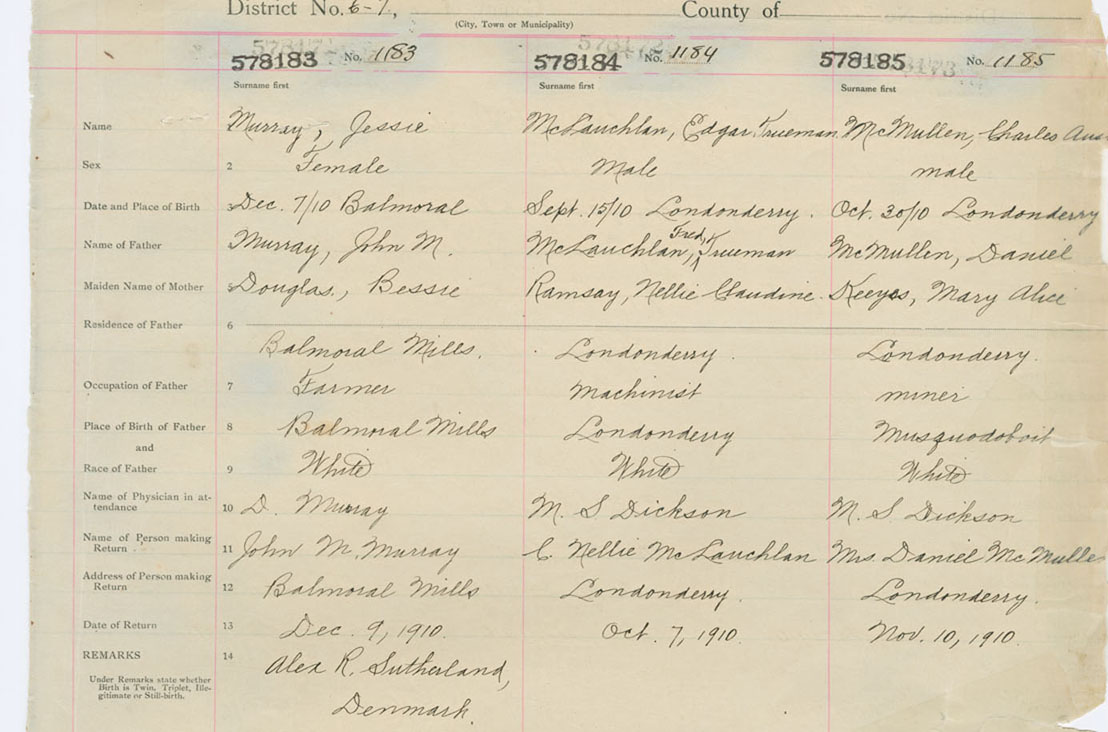 District No. 6-7, County of
(City, Town or Municipality)
578183 No. 1183 578184 No. 1184 578185 No. 1185
Surname first Surname first Surname first
Name Murray, Jessie McLauchlan, Edgar Trueman. McMullen, Charles
Sex 2 Female Male male
Date and Place of Birth 3 Dec. 7/10 Balmoral Sept. 15/10 Londonderry. Oct. 30/10 Londonderry
Name of Father Murray, John M. McLauchlan, Fred, Trueman McMullen, Daniel
Maiden Name of Mother 5 Douglas, Bessie Ramsay, Nellie Claudine. Keeyes, Mary Alice
Residence of Father 6
Balmoral Mills. Londonderry. Londonderry.
Occupation of Father 7 Farmer Machinist miner
Place of Birth of Father 8 Balmoral Mills Londonderry Musquodoboit
and
Race of Father 9 White White White
Name of Physician in at-
tendance 10 D. Murray M. S. Dickson M. S. Dickson
Name of Person making
Return 11 John M. Murray C. Nellie McLauchlan Mrs. Daniel McMulle
Address of Person making
Return 12 Balmoral Mills Londonderry. Londonderry.
Date of Return 13 Dec. 9, 1910. Oct. 7, 1910. Nov. 10, 1910.
REMARKS 14 Alex R. Sutherland,
Under Remarks state whether
Birth is Twin, Triplet, Ille-
gitimate or Still-birth.
Denmark.